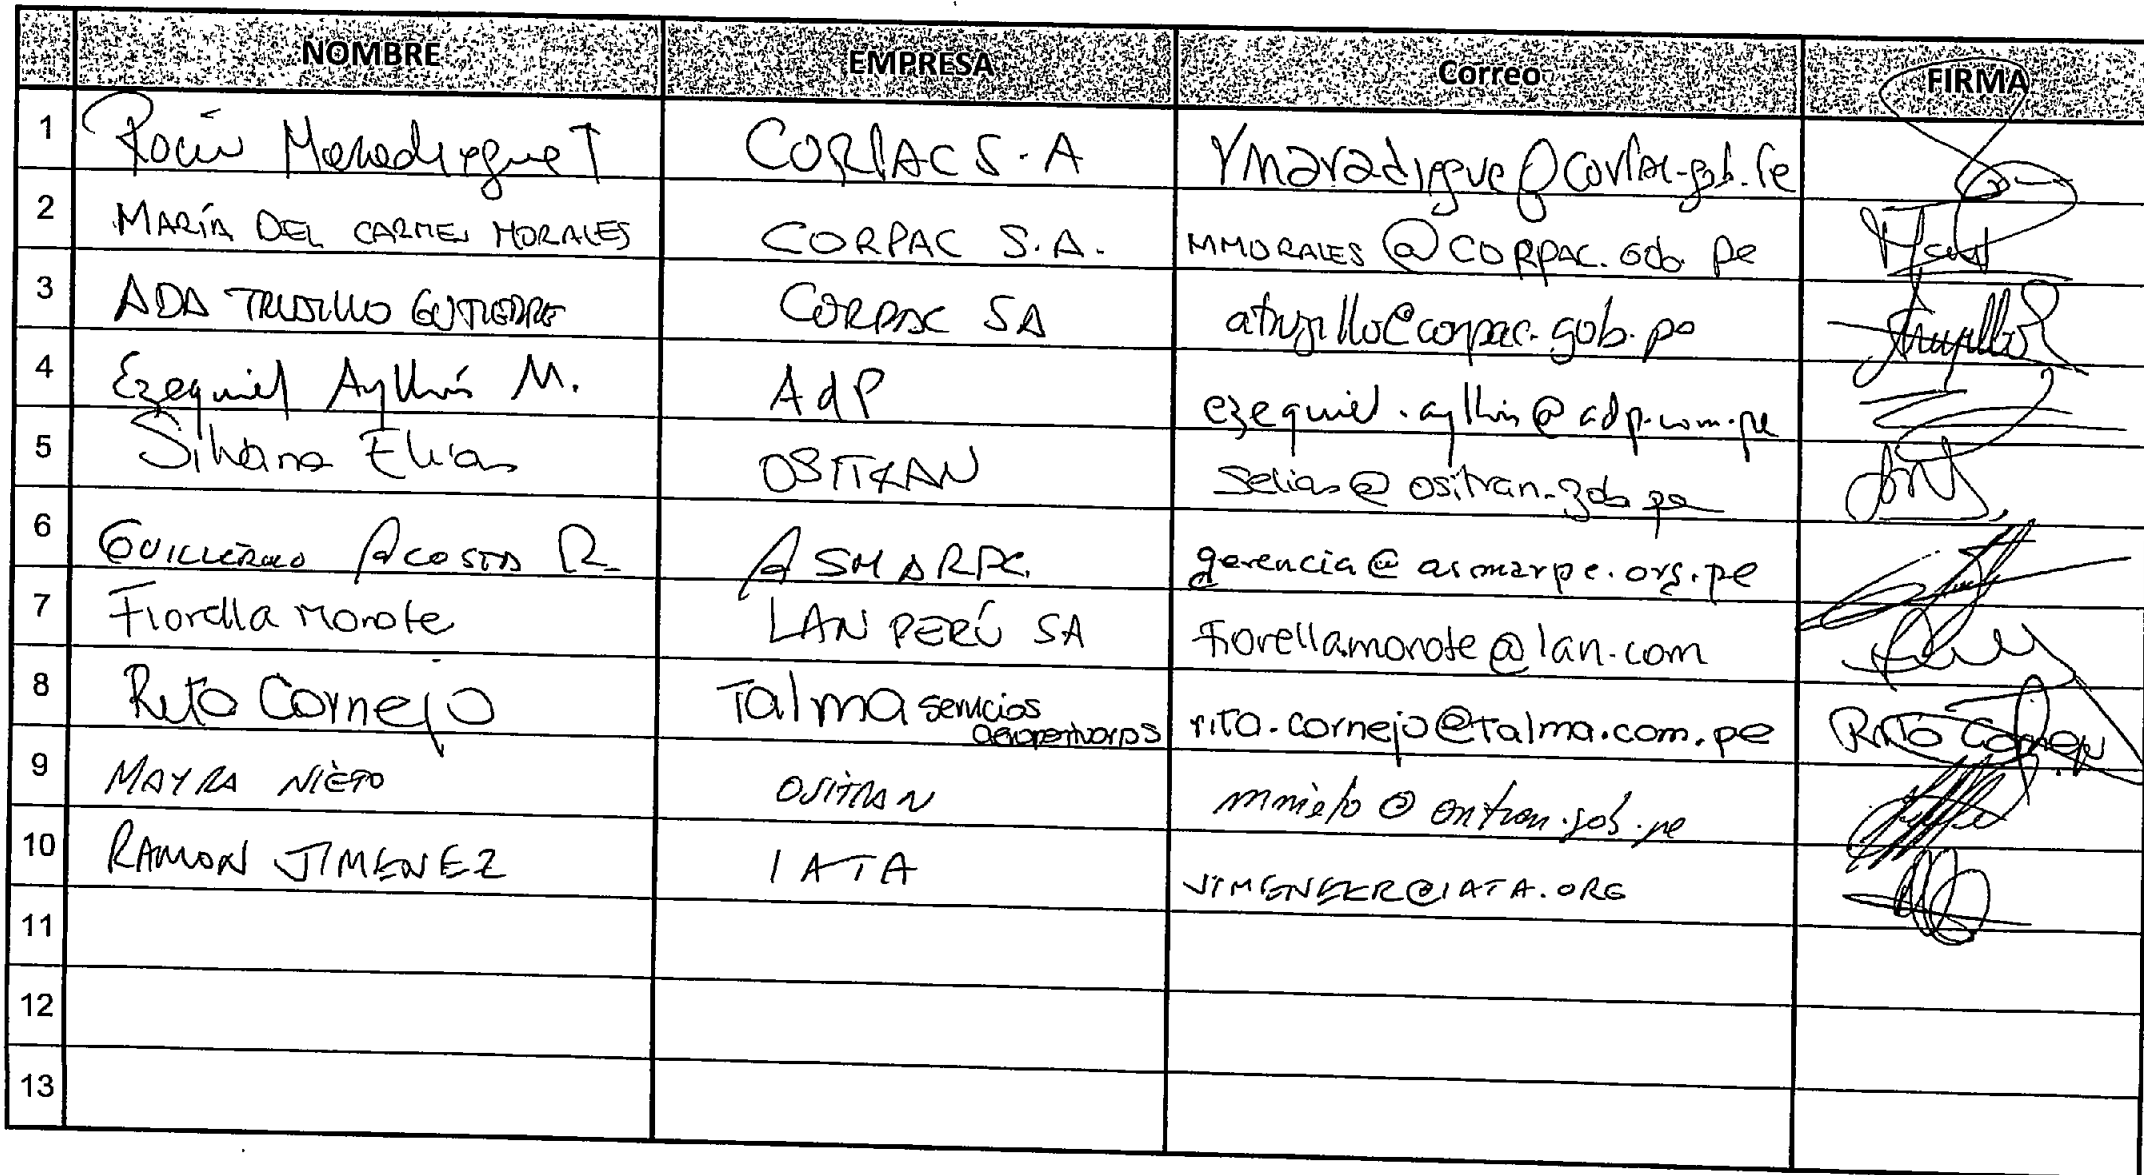 NOMBRE EMPRESA Correo FIRMA
1 Rocío Maradiegue T CORPAC S.A Ymaradiegue@corpac.gob.pe
2 MARÍA DEL CARMEN MORALES CORPAC S.A. MMORALES@CORPAC.GOB.PE
3 ADA TRUJILLO GUTIERRE CORPAC SA atrujillo@corpac.gob.pe Atrujillo
4 Ezequiel Ayllón M. AdP ezequiel.ayllon@adp.com.pe
5 Silvana Elias OSITRAN selias@ositran.gob.pe
6 GUILLERMO ACOSTA R. ASMARPE gerencia@asmarpe.org.pe
7 Fiorella Morote LAN PERÚ SA fiorellamorote@lan.com
8 Rita Cornejo Talma servicios
aeroportuarios rita.cornejo@talma.com.pe Rita Cornejo
9 MAYRA NIETO OSITRAN mnieto@ositran.gob.pe
10 RAMON JIMENEZ IATA JIMENEZR@IATA.ORG
11
12
13